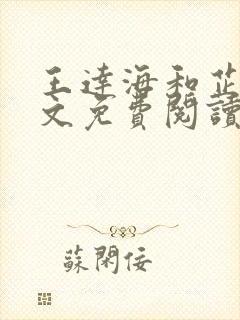 王達海和芷
文免費閱讀
蘇閑佞